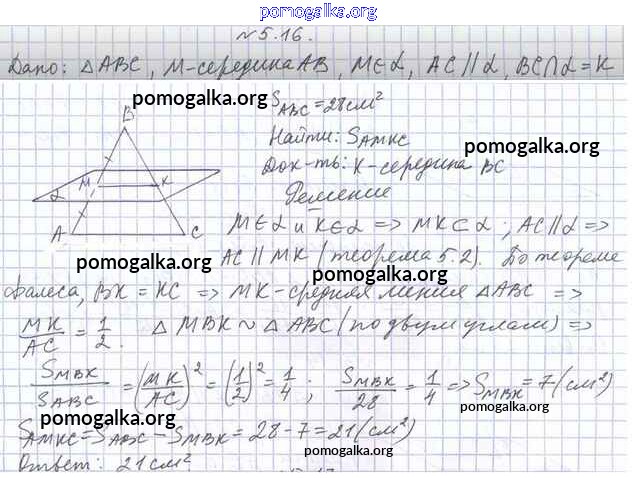 pomogalka.org
№ 5.16.
Дано: △ABC, M-середина AB, M∈α, AC∥α, BC∩α=K
pomogalka.org
S_ABC=28см²
B
Найти: S_AMKC
pomogalka.org
Док-ть: K-середина BC
M
K
α
Решение
A
C
M∈α и K∈α => MK⊂α; AC∥α =>
pomogalka.org
AC∥MK (теорема 5.2). По теореме
pomogalka.org
Фалеса, BK=KC => MK-средняя линия △ABC =>
MK/AC = 1/2. △MBK ~ △ABC (по двум углам) =>
S_MBK/S_ABC = (MK/AC)² = (1/2)² = 1/4; S_MBK/28 = 1/4 => S_MBK=7(см²)
pomogalka.org
pomogalka.org
S_AMKC=S_ABC-S_MBK=28-7=21(см²)
pomogalka.org
Ответ: 21см².